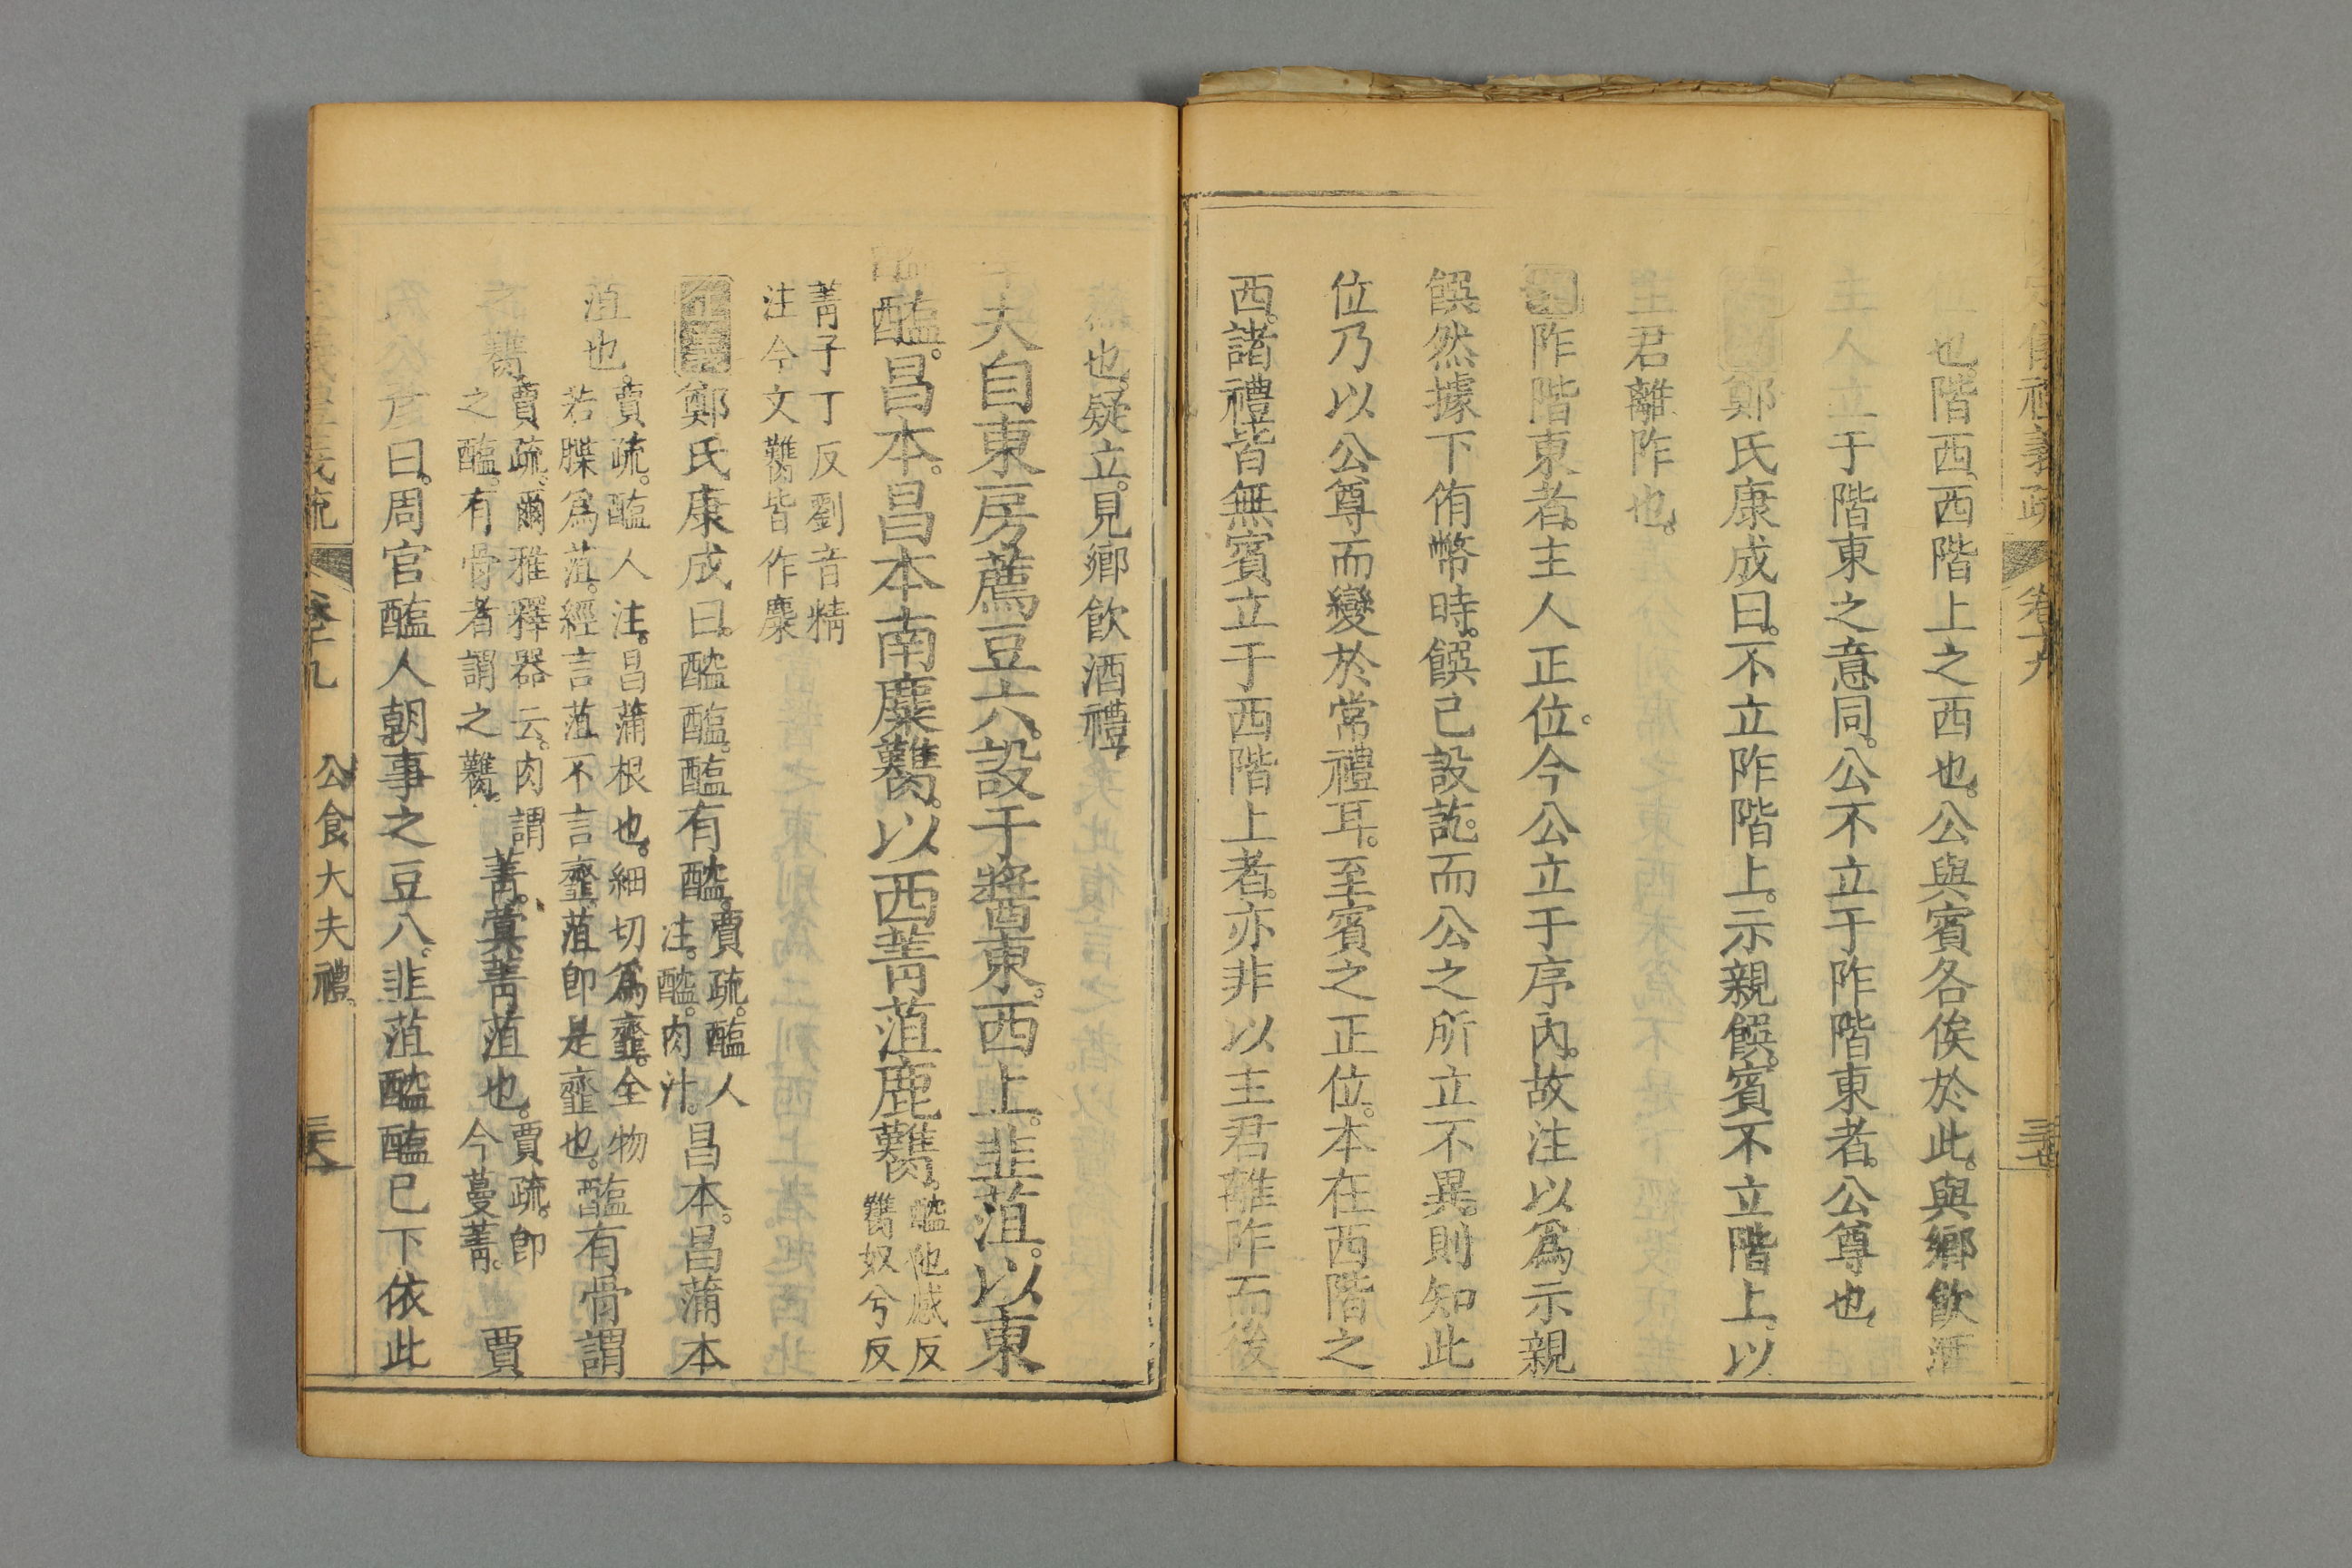 儀禮義疏 卷十九
也階西西階上之西也公與賓各俟於此與鄉飲酒
主人立于階東之意同公不立于阼階東者公尊也
鄭氏康成曰不立阼階上示親饌賓不立階上以
主君離阼也
阼階東者主人正位今公立于序內故注以爲示親
饌然據下侑幣時饌已設訖而公之所立不異則知此
位乃以公尊而變於常禮耳至賓之正位本在西階之
西諸禮皆無賓立于西階上者亦非以主君離阼而後
也疑立見鄉飲酒禮
夫自東房薦豆六設于醬東西上韭菹以東
醓醢昌本昌本南麋臡以西菁菹鹿臡
醓他感反
臡奴兮反
菁子丁反劉音精
注今文臡皆作麋
正義鄭氏康成曰醓醢醢有醓
賈疏醢人
注醓肉汁
昌本昌蒲本
菹也
賈疏醢人注昌蒲根也細切爲齏全物
若䐑爲菹經言菹不言齏菹即是齏也
醢有骨謂
之臡
賈疏爾雅釋器云肉謂
之醢有骨者謂之臡
菁蓂菁菹也
賈疏即
今蔓菁
賈
公彥曰周官醢人朝事之豆八韭菹醓醢已下依此
義疏 卷十九 公食大夫禮